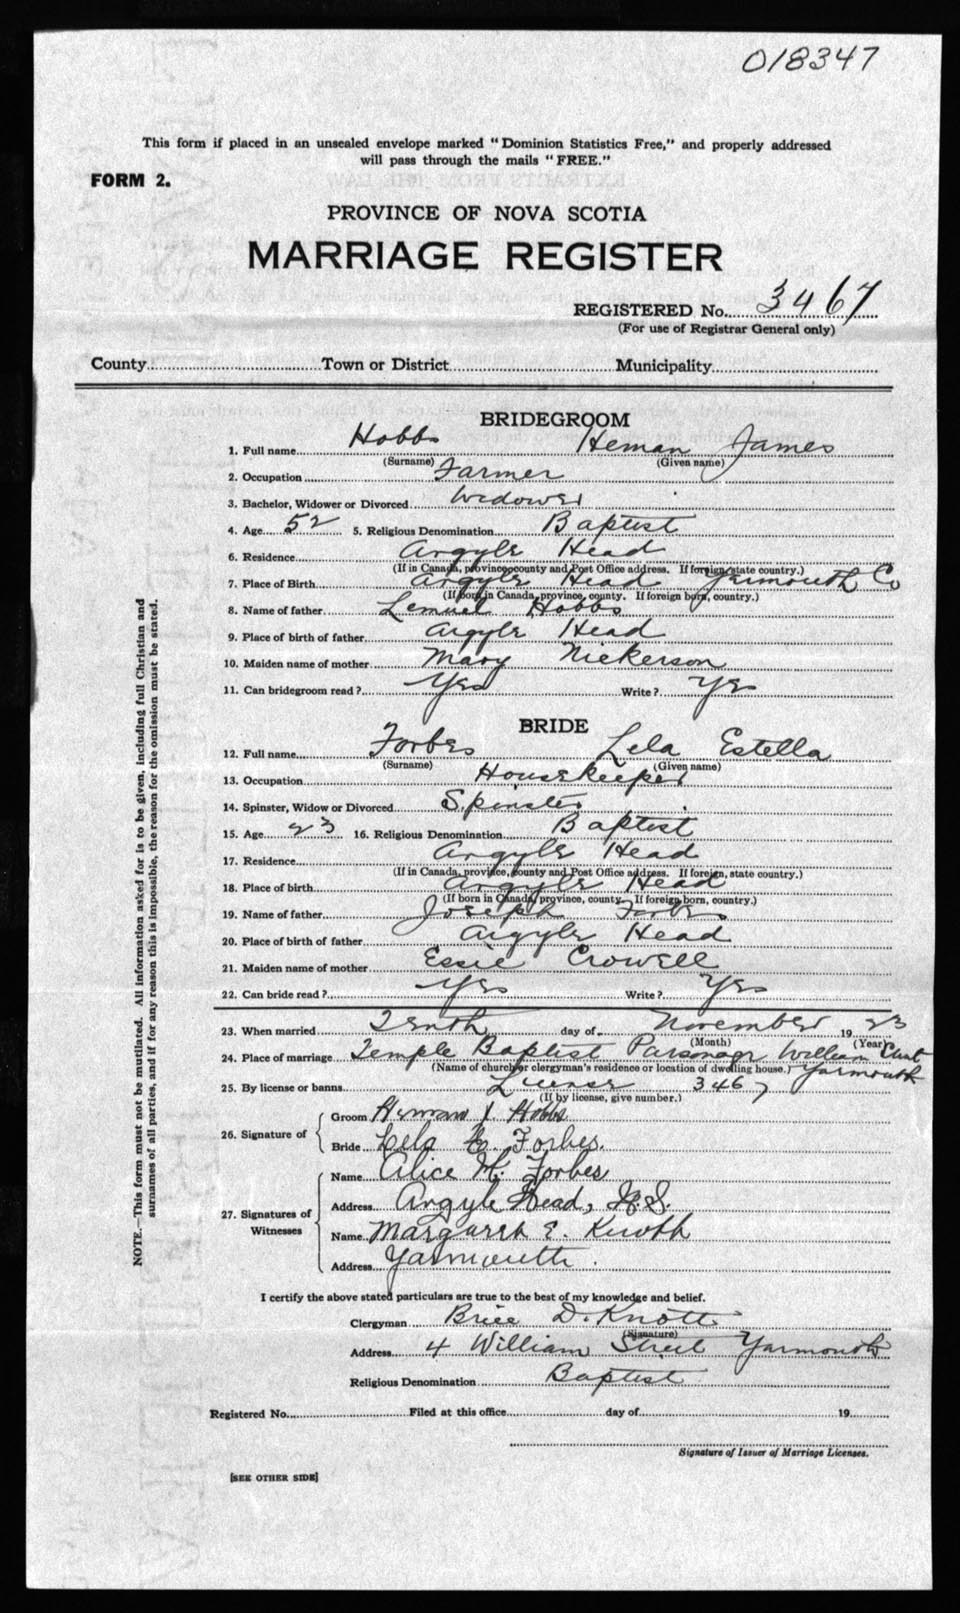 018347
This form if placed in an unsealed envelope marked "Dominion Statistics Free," and properly addressed
will pass through the mails "FREE."
FORM 2.
PROVINCE OF NOVA SCOTIA
MARRIAGE REGISTER
REGISTERED No. 3467
(For use of Registrar General only)
County Town or District Municipality
BRIDEGROOM
1. Full name Hobbs Heman James
(Surname) (Given name)
2. Occupation Farmer
3. Bachelor, Widower or Divorced Widower
4. Age 52 5. Religious Denomination Baptist
6. Residence Argyle Head
(If in Canada, province county and Post Office address. If foreign, state country.)
7. Place of Birth Argyle Head Yarmouth Co
(If born in Canada, province, county. If foreign born, country.)
8. Name of father Lemuel Hobbs
9. Place of birth of father Argyle Head
10. Maiden name of mother Mary Nickerson
11. Can bridegroom read? Yes Write? Yes
BRIDE
12. Full name Forbes Lela Estella
(Surname) (Given name)
13. Occupation Housekeeper
14. Spinster, Widow or Divorced Spinster
15. Age 23 16. Religious Denomination Baptist
17. Residence Argyle Head
(If in Canada, province, county and Post Office address. If foreign, state country.)
18. Place of birth Argyle Head
(If born in Canada, province, county. If foreign born, country.)
19. Name of father Joseph Forbes
20. Place of birth of father Argyle Head
21. Maiden name of mother Essie Crowell
22. Can bride read? Yes Write? Yes
23. When married Tenth day of November 19 23
(Month) (Year)
24. Place of marriage Temple Baptist Parsonage William Yarmouth
(Name of church or clergyman's residence or location of dwelling house.)
25. By license or banns License 3467
(If by license, give number.)
26. Signature of Groom Heman J. Hobbs
Bride Lela E. Forbes.
27. Signatures of Witnesses Name Alice M. Forbes
Address Argyle Head, N.S.
Name Margaret E. Knott
Address Yarmouth.
I certify the above stated particulars are true to the best of my knowledge and belief.
Clergyman Brice D. Knott
(Signature)
Address 4 William Street Yarmouth
Religious Denomination Baptist
Registered No. Filed at this office day of 19
Signature of Issuer of Marriage Licenses.
[SEE OTHER SIDE]
NOTE.—This form must not be mutilated. All information asked for is to be given, including full Christian and
surnames of all parties, and if for any reason this is impossible, the reason for the omission must be stated.